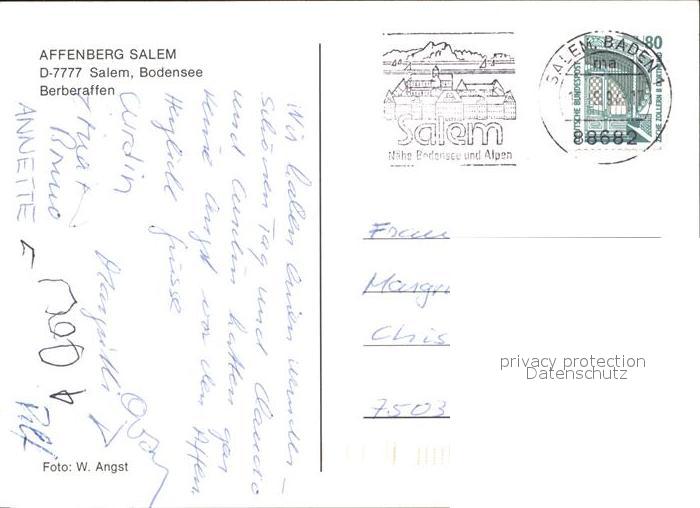 AFFENBERG SALEM
D-7777 Salem, Bodensee
Berberaffen
Wir haben einen wunder-
schönen Tag und Claudio
und Curdin hatten gar
keine Angst vor den Affen.
Herzliche Grüsse
Curdin
Bruno
ANNETTE
Margrith
Foto: W. Angst
Salem
Nähe Bodensee und Alpen
SALEM, BADEN 1
88682
80
DEUTSCHE BUNDESPOST
Frau
Margr
Chris
7503
privacy protection
Datenschutz